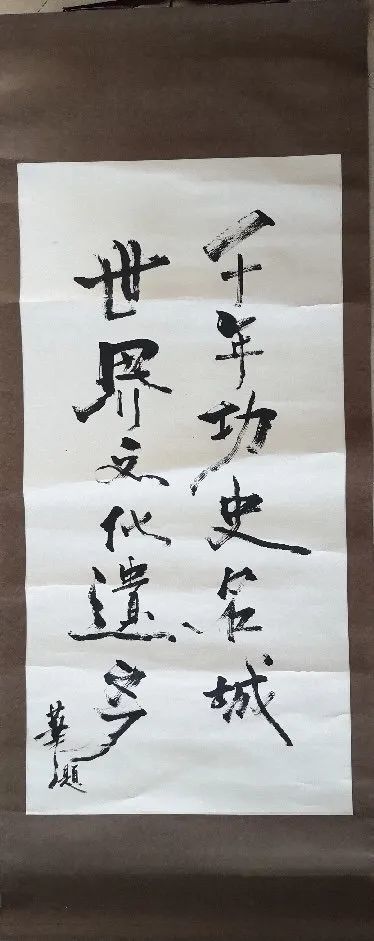 千年功史名城
世界文化遺产
華題